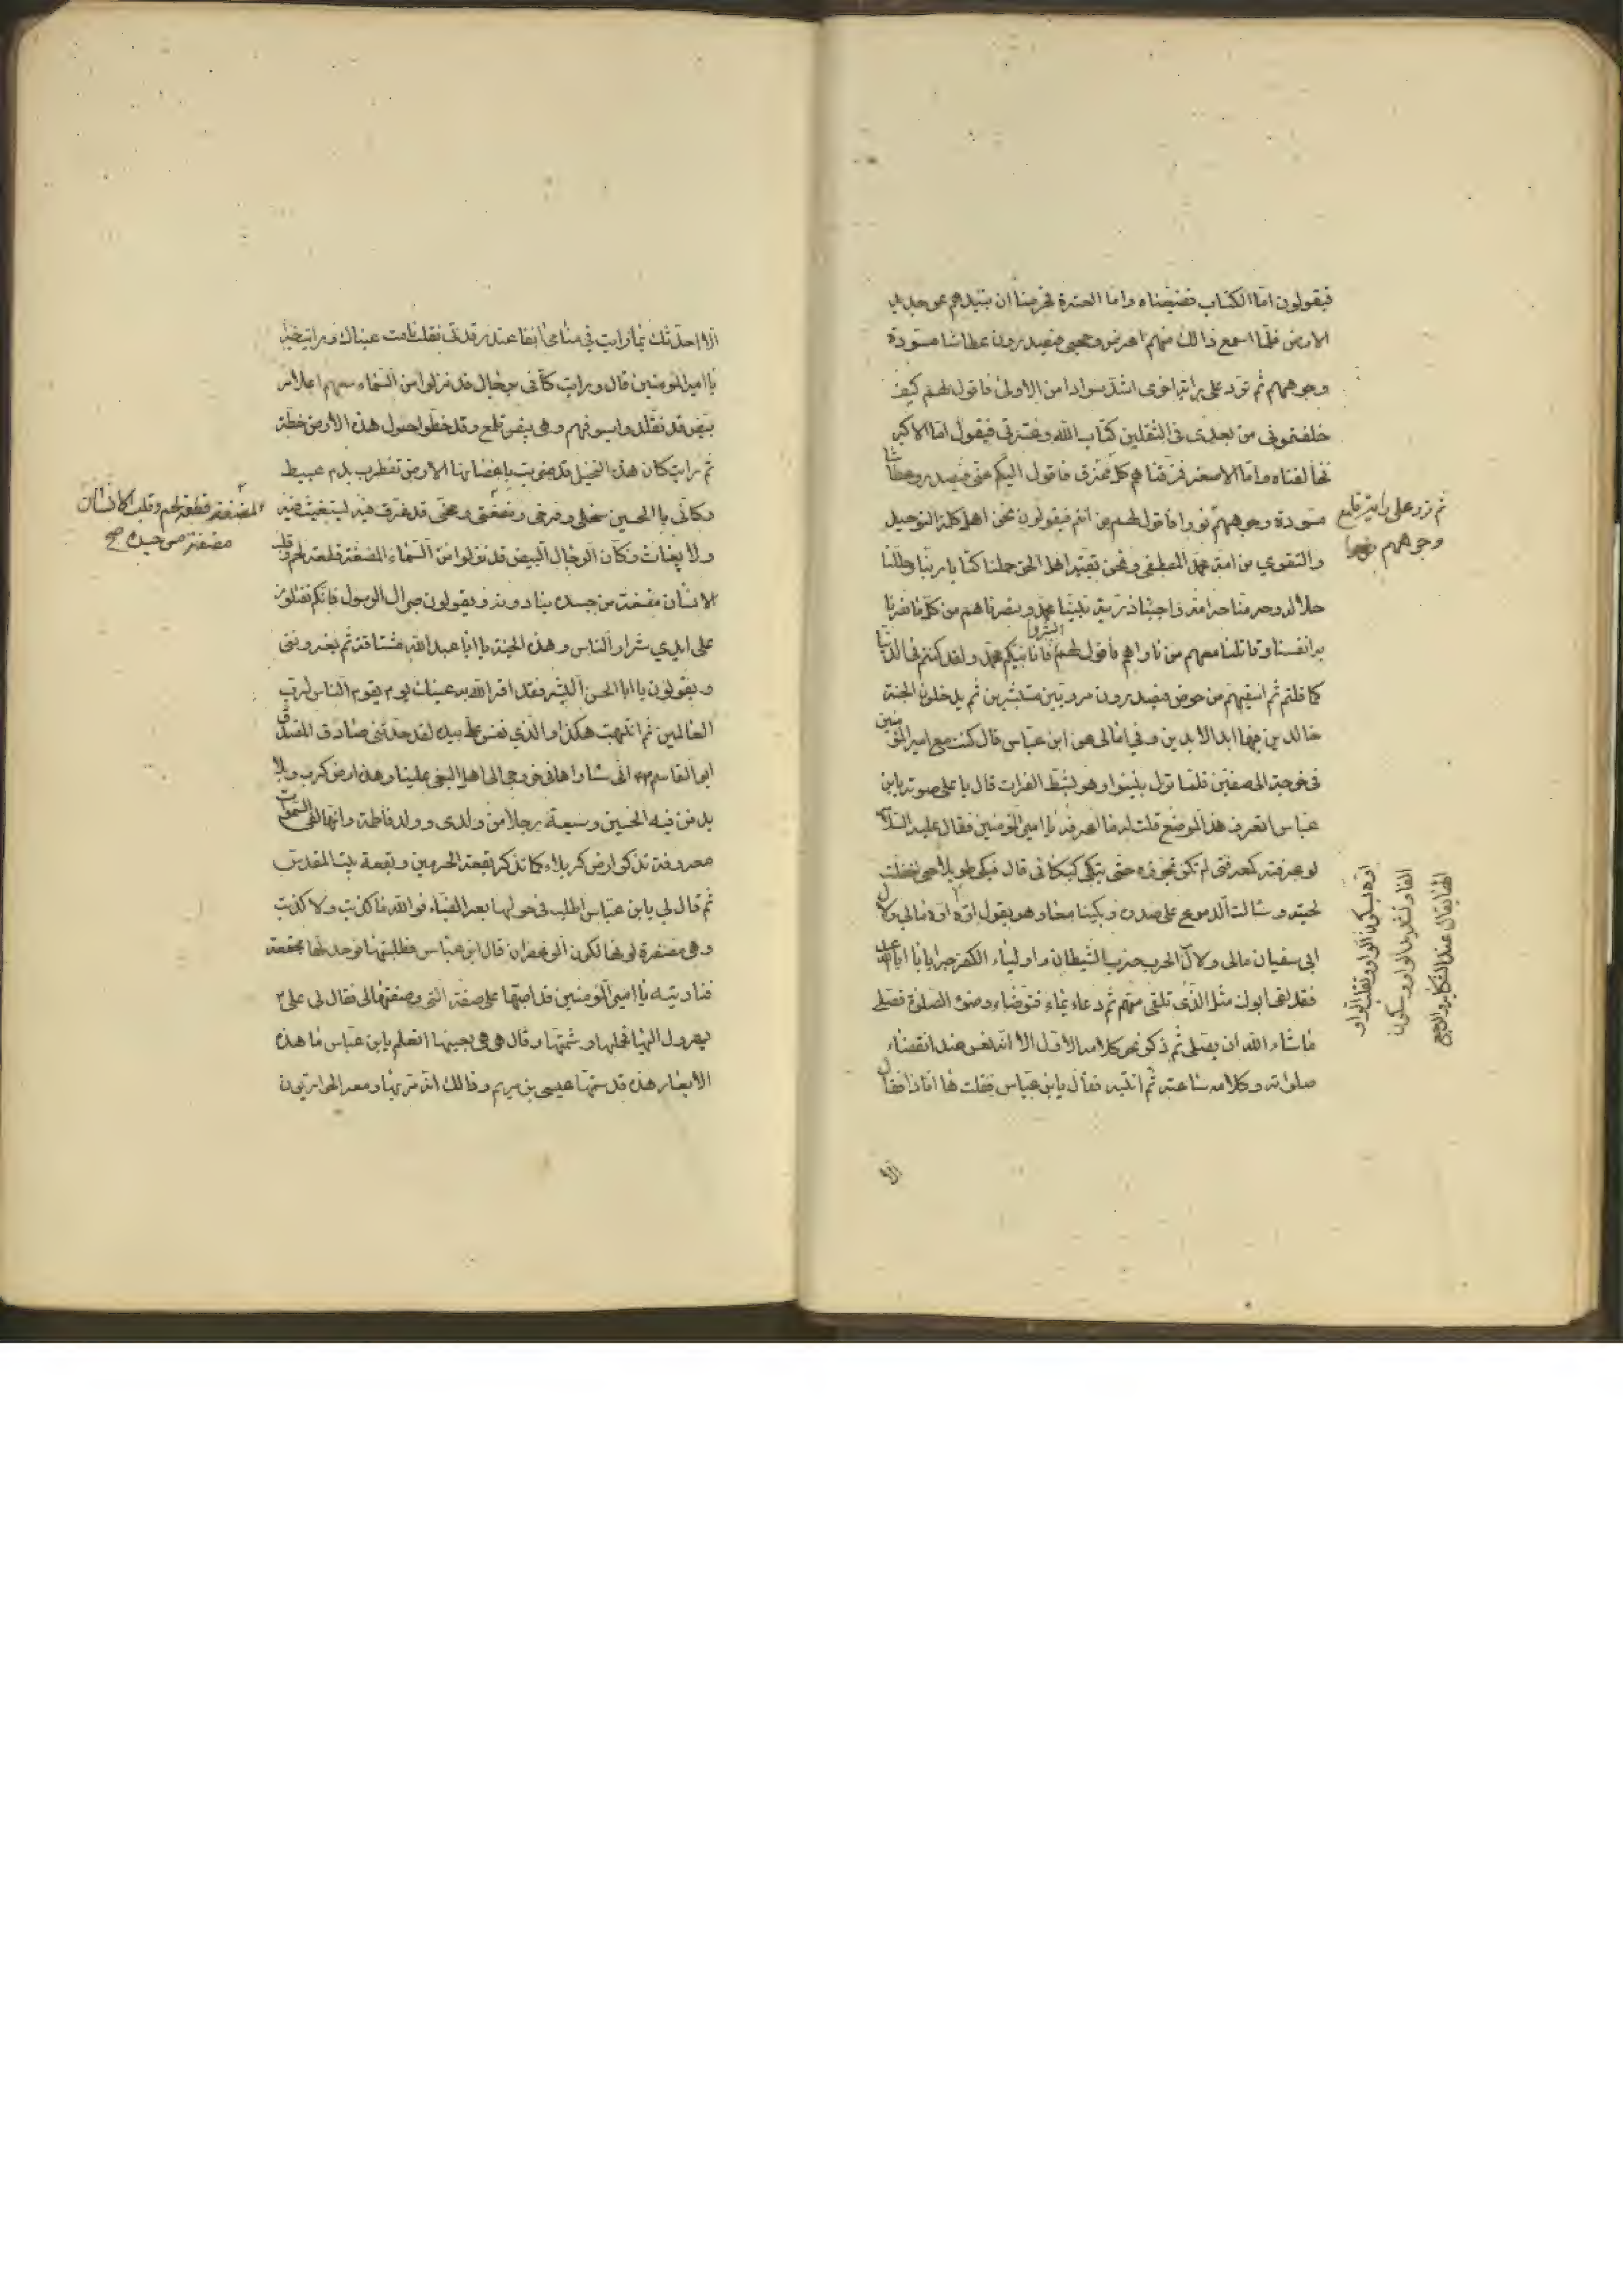 فيقولون اما الكتاب فضيعناه واما العترة فحرصنا ان نبيدهم عن جديد
الارض فلما اسمع ذالك منهم اعرض وجهي فيصدرون عطاشا مسودة
وجوههم ثم ترد على راية اخرى اشد سوادا من الاولى فاقول لهم كيف
خلفتموني من بعدي في الثقلين كتاب الله وعترتي فيقول اما الاكبر
فخالفناه واما الاصغر فمزقناهم كل ممزق فاقول اليكم عني فيصدرون عطاشا
مسودة وجوههم
ثم ترد على راية تلمع
وجوههم نورا
نورا فاقول لهم من انتم فيقولون نحن اهل كلة التوحيد
والتقوى من امة محمد المصطفى ونحن بقية اهل الحق حملنا كتاب ربنا وحللنا
حلاله وحرمنا حرامه واحببنا ذرية نبينا محمد ونصرناهم من كل ما نصرنا
به انفسنا وقاتلنا معهم من ناواهم فاقول لهم ابشروا فانا نبيكم محمد ولقد كنتم في الدنيا
كما قلتم ثم اسقيهم من حوضي فيصدرون مرويين مستبشرين ثم يدخلون الجنة
خالدين فيها ابد الابدين وفي امالى عن ابن عباس قال كنت مع امير المؤمنين
في خرجة الى صفين فلما نزل بنينوا وهو بشط الفرات قال باعلى صوته يابن
عباس اتعرف هذا الموضع قلت له ما اعرفه يا امير المؤمنين فقال عليه السلام
لو عرفته كمعرفتي لم تكن تجوزه حتى تبكي كبكائي قال فبكى طويلا حتى اخضلت
لحيته وسالت الدموع على صدره وبكينا معا وهو يقول اوه اوه مالي ولآل
ابى سفيان مالى ولآل الحرب حزب الشيطان واولياء الكفر صبرا يا ابا عبد الله
فقد لقى ابوك مثل الذي تلقى منهم ثم دعاء بماء فتوضاء وضوء الصلوة فصلى
ماشاء الله ان يصلى ثم ذكر نحو كلامه الاول الا انه نعس عند انقضاء
صلوته وكلامه ساعة ثم انتبه فقال يابن عباس فقلت ها انا ذا فقال
اوه بسكون الواو وتقلب الواو
الفا وتشديد الواو وسكون
الها يقال عند الشكاية والتوجع
الا
الا احدثك بما رايت في منامي انفا عند رقدتي فقلت نامت عيناك ورايت خيرا
يا امير المؤمنين قال رايت كأني برجال قد نزلوا من السماء معهم اعلام
بيض قد تقلدوا سيوفهم وهي بيض تلمع وقد خطوا حول هذه الارض خطة
ثم رايت كان هذه النخيل قد ضربت باغصانها الارض تضطرب بدم عبيط
وكأني بالحسين سخلي وفرخي ومضغتي ومخي قد غرق فيه يستغيث فيه
ولا يغاث وكأن الرجال البيض قد نزلوا من السماء المضغة قطعة لحم وقلب
الانسان مضغة من جسده ينادونه ويقولون صبرا ال الرسول فانكم تقتلون
على ايدي شرار الناس وهذه الجنة يا ابا عبد الله مشتاقة ثم يعزونني
ويقولون يا ابا الحسن ابشر فقد اقر الله به عينك يوم يقوم الناس لرب
العالمين ثم انتبهت هكذا والذي نفس علي بيده لقد حدثني صادق المصدق
ابو القاسم انى ساراها في خروجي الى اهل البغي علينا وهذه ارض كرب وبلا
يدفن فيه الحسين وسبعة رجلا من ولدي وولد فاطمة وانها لفي السموات
معروفة تذكر ارض كربلاء كما تذكر بقعة الحرمين وبقعة بيت المقدس
ثم قال لي يابن عباس اطلب في حولها بعر الظباء فوالله ما كذبت ولا كذبت
وهي مصفرة لونها لكون الزعفران قال ابن عباس فطلبتها فوجدتها مجتمعة
فناديته يا امير المؤمنين قد اصبتها على صفة التي وصفتها لي فقال لي على
يهرول اليها فحملها وشمها وقال هي هي بعينها اتعلم يابن عباس ما هذه
الابعار هذه قد شمها عيسى بن مريم وذالك انه مر بها ومعه الحواريون
المضغة قطعة لحم وقلب الانسان
مضغة من جسده صح